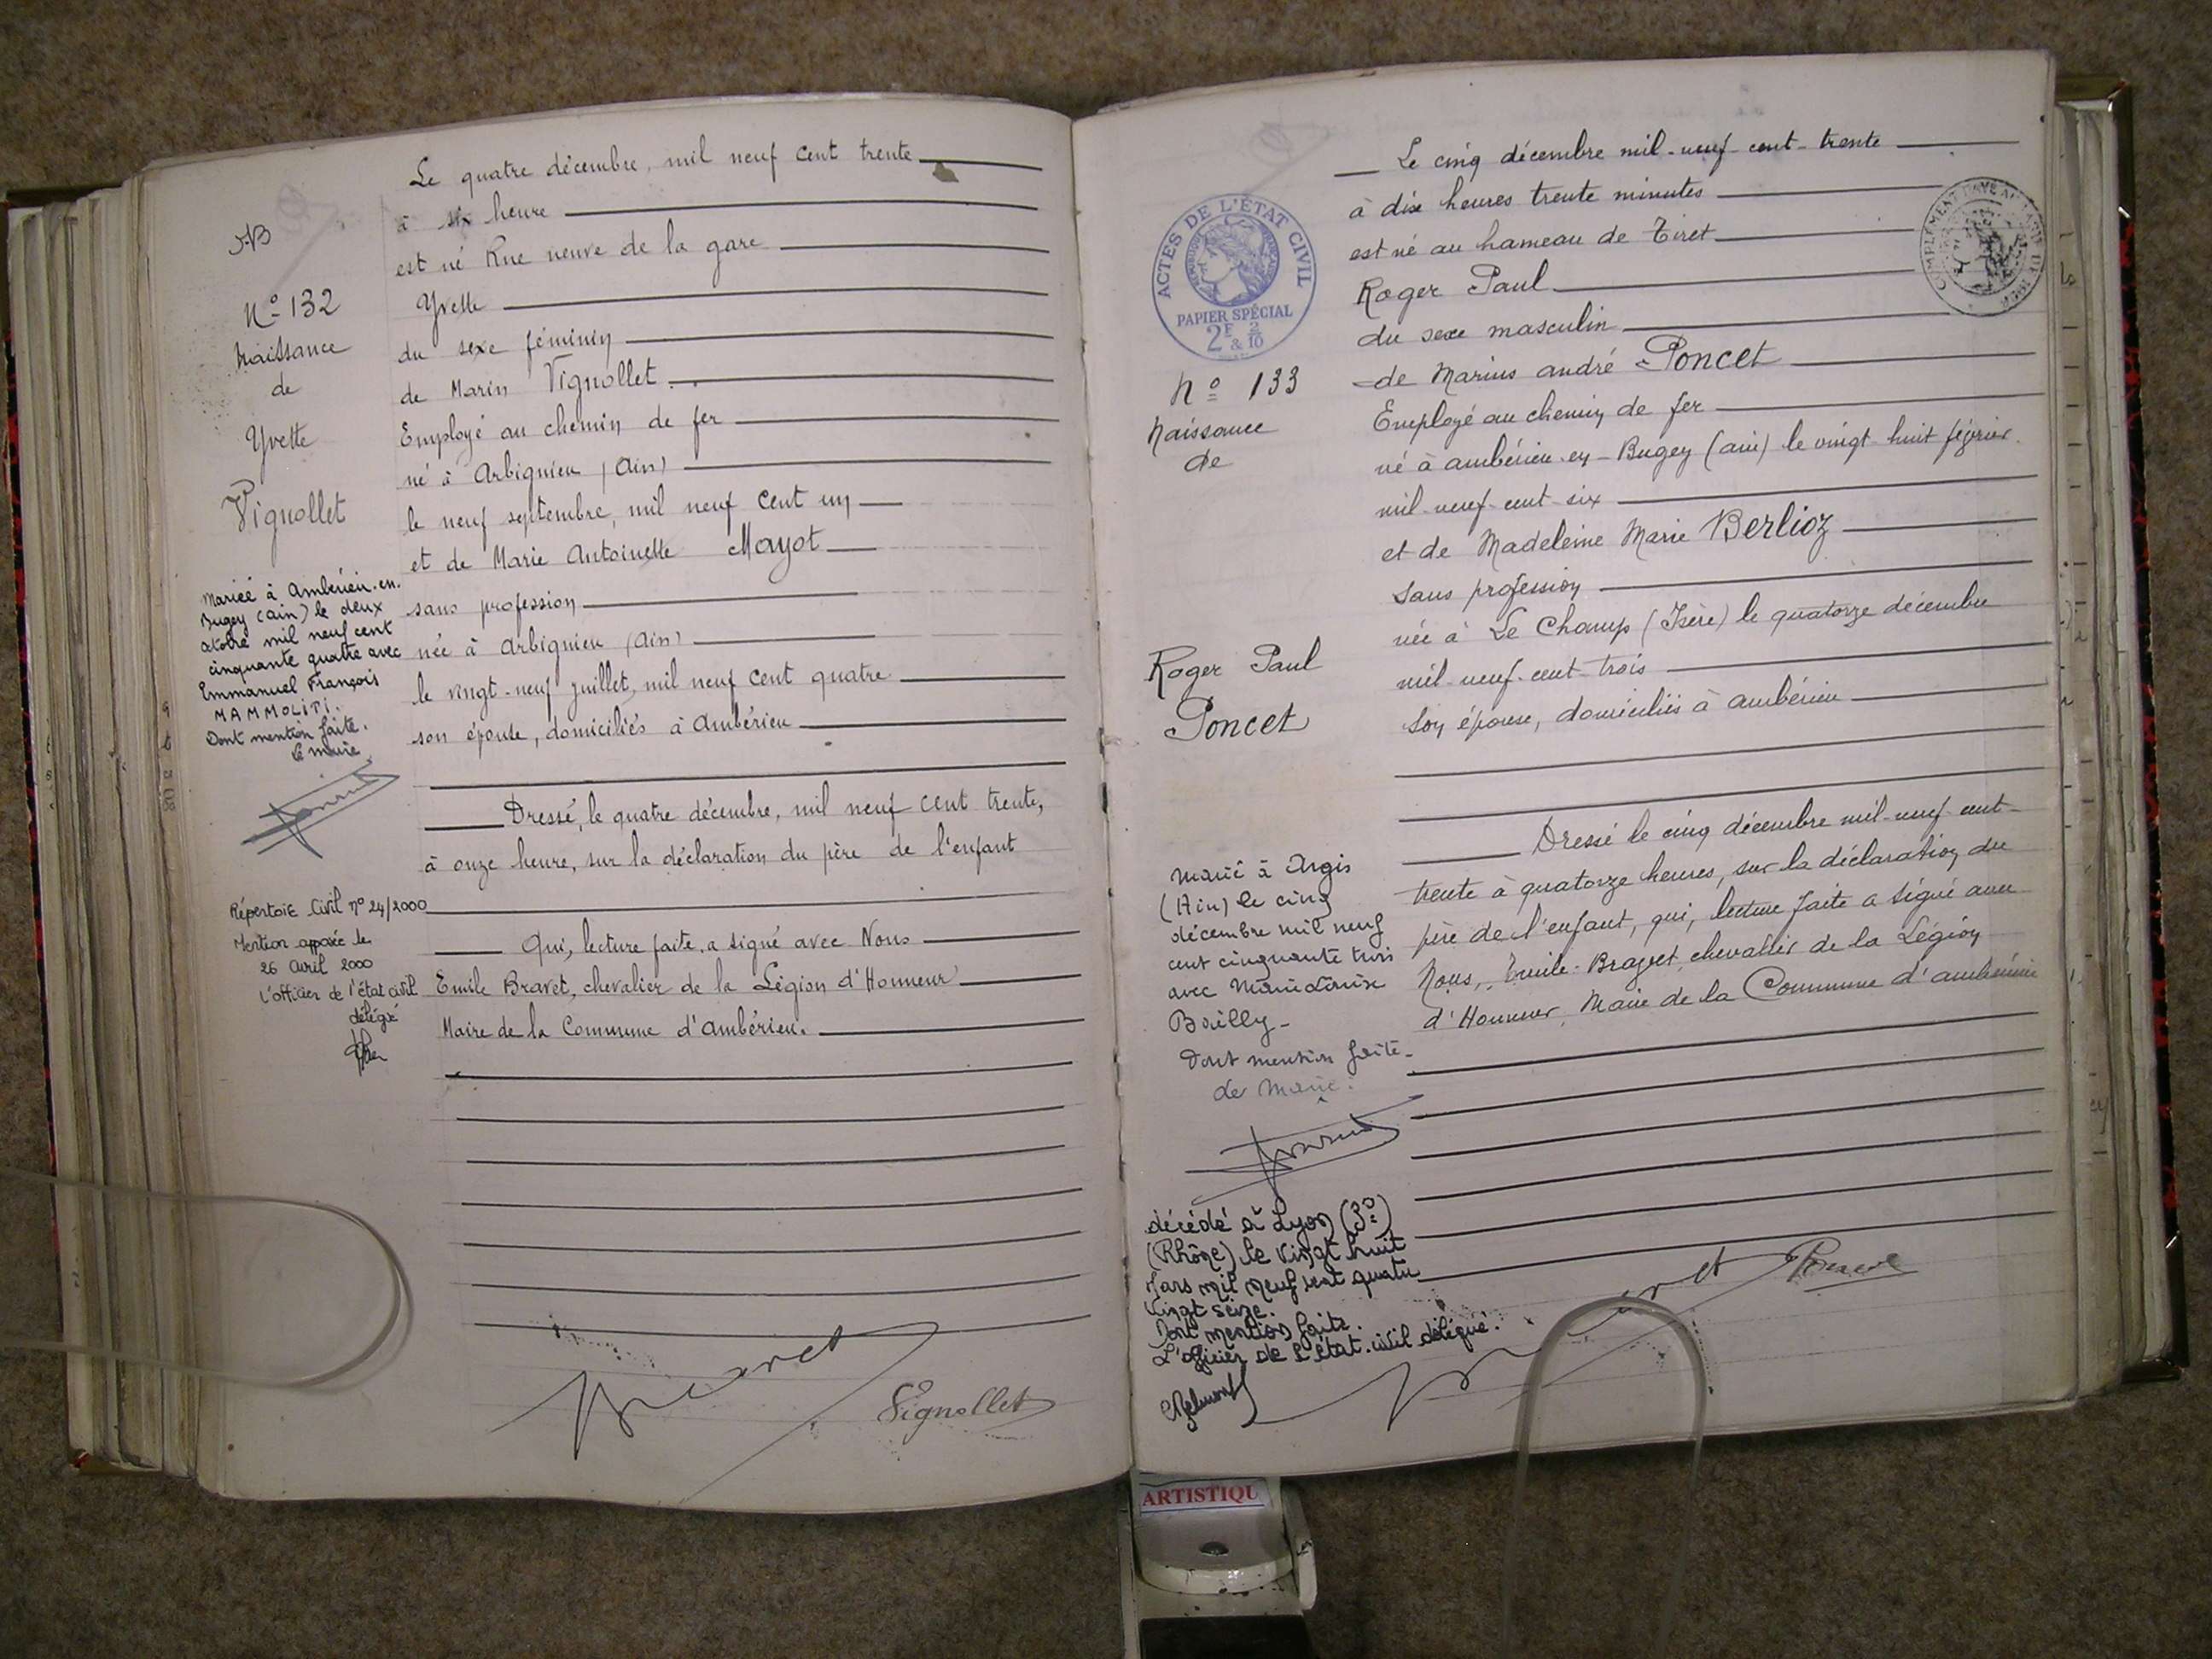 Le quatre décembre, mil neuf cent trente
à six heure
est né Rue neuve de la gare
Yvette
du sexe féminin
de Marin Vignollet
Employé au chemin de fer
né à Arbignieu (Ain)
le neuf septembre, mil neuf cent un
et de Marie Antoinette Mayot
sans profession
née à Arbignieu (Ain)
le vingt-neuf juillet, mil neuf cent quatre
son épouse, domiciliés à Ambérieu
Dressé, le quatre décembre, mil neuf cent trente,
à onze heure, sur la déclaration du père de l'enfant
Qui, lecture faite, a signé avec Nous
Emile Bravet, chevalier de la Légion d'Honneur
Maire de la Commune d'Ambérieu.
Bravet
Vignollet
N° 132
Naissance
de
Yvette
Vignollet
Mariée à Ambérieu-en-
Bugey (Ain) le deux
octobre mil neuf cent
cinquante quatre avec
Emmanuel François
MAMMOLITI.
Dont mention faite.
le maire
Répertoire Civil n° 24/2000
Mention apposée le
26 Avril 2000
L'officier de l'état civil
délégué
Le cinq décembre mil-neuf-cent-trente
à dix heures trente minutes
est né au hameau de Tiret
Roger Paul
du sexe masculin
de Marius André Poncet
Employé au chemin de fer
né à Ambérieu-en-Bugey (Ain) le vingt-huit février
mil-neuf-cent-six
et de Madeleine Marie Berlioz
sans profession
née à Le Champ (Isère) le quatorze décembre
mil-neuf-cent-trois
son épouse, domiciliés à Ambérieu
Dressé le cinq décembre mil-neuf-cent-
trente à quatorze heures, sur la déclaration du
père de l'enfant, qui, lecture faite a signé avec
Nous, Emile Bravet, chevalier de la Légion
d'Honneur, Maire de la Commune d'Ambérieu
ACTES DE L'ÉTAT CIVIL
PAPIER SPÉCIAL
2F & 2/10
N° 133
Naissance
de
Roger Paul
Poncet
Marié à Argis
(Ain) le cinq
décembre mil neuf
cent cinquante trois
avec Marie Louise
Bailly-
Dont mention faite-
Le Maire:
décédé à Lyon (3e)
(Rhône) le vingt huit
Mars mil neuf cent quatre
vingt seize.
Dont mention faite.
L'officier de l'état-civil délégué.
Poncet
ARTISTIQU